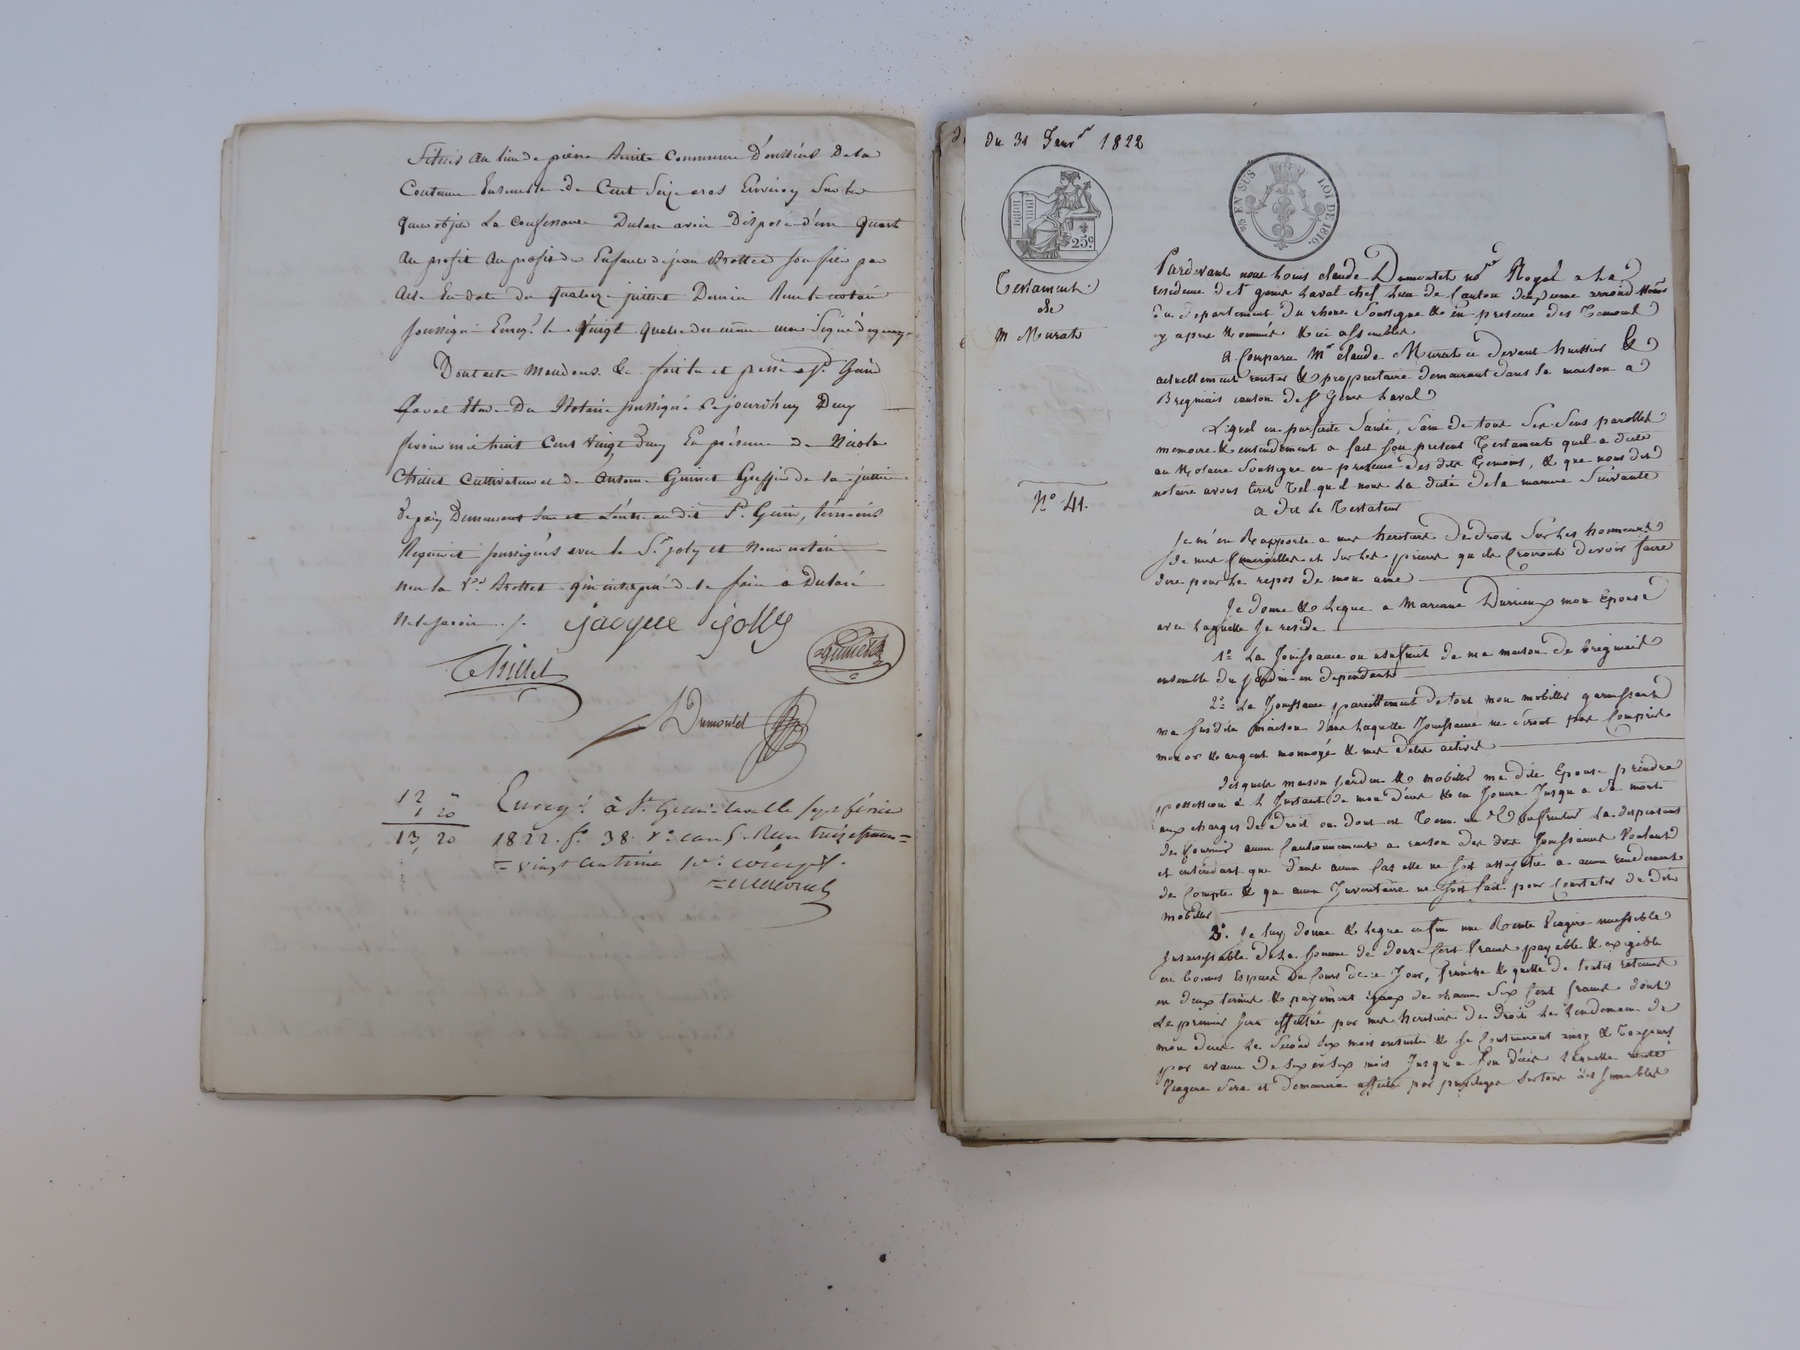 Situés au lieu de pierre Commune D'oussieux De la
Contenue Ensemble de Cent Seize ares Environ Sur les
quels objets La Confessante Déclare avoir Disposé d'un Quart
Au profit Au profit des Enfants de jean Brottet son fils par
Acte En date du Quatorze juillet Dernier Reçu le notaire
soussigné Enreg.é le Vingt quatre du même mois Signé
Dont acte Mandons &c fait lu et passé à S.t Genis
Laval Etude Du Notaire soussigné Cejourd'huy Deux
fevrier mil huit Cent Vingt Deux En présence de Nicolas
Thillet Cultivateur et de Antoine Guinet Greffier de la justice
de paix Demeurant l'un et l'autre au dit S.t Genis, témoins
Requis et soussignés avec le S.r joly et Nous notaire
non la V.ve Brottet qui interpellé de le faire a Declaré
Ne le savoir ./.
jacque jolly
Guinet
Thillet
Dumontet
12 "
1 20
13, 20
Enreg.é à S.t Genis-laval le sept février
1822. f.o 38. v.o cas 5. Reçu treize francs
vingt centimes
du 31 Janv.er 1822
25c
EN SUS
LOI DE 1816.
Testament
de
M. Murat
N.o 41.
Pardevant nous Louis claude Dumontet no.re Royal a la
residence de S.t genis Laval chef lieu de canton
du Departement du rhone soussigné & en presence des Temoins
cy apres Nommés & ici assemblés
A Comparu M.r claude Murat ci devant huissier &
actuellement rentier & proprietaire demeurant dans sa maison a
Brignais canton de S.t Genis Laval
Lequel en parfaite Santé, sain de tout Ses Sens parolles
memoire & entendement a fait son present Testament quel a dicté
au Notaire Soussigné en presence des dits Temoins, & que nous dit
notaire avons ecrit Tel qu'il nous La dicté de la maniere Suivante
a dit Le Testateur
Je m'en Rapporte a mes heritiers De droit Sur les honneurs
de mes funerailles et sur les prieres qu'ils Croiront devoir faire
dire pour Le repos de mon ame
Je donne & Legue a Mariane Durrieux mon Epouse
avec Laquelle Je reside
1.o La Jouissance ou usufruit de ma maison de Brignais
ensemble du Jardin en dependant
2.o La Jouissance pareillement de tout mon mobillier garnissant
ma susdite maison dans Laquelle Jouissance ne seront pas Compris
mon or & argent monnoyé & mes dettes actives
Desquels maison Jardin & mobillier ma dite Epouse prendra
possession a L'Instant de mon décès & en Jouira Jusqu'a sa mort
aux charges de Droit ou dont est Tenu un Usufruitier La dispensant
de fournir aucun Cautionnement a raison des dites Jouissances Voulant
et entendant que dans aucun Cas elle ne soit assujettie a aucun rendement
de Compte & qu'aucun Inventaire ne soit fait pour Constater du dit
mobillier
3.o Je luy donne & Legue enfin une Rente Viagere
Insaisissable de La somme de douze Cent francs payable & exigible
en bonnes Especes Du Cours de ce Jour, franche & quitte de toutes retenues
en deux termes & payement égaux de chacun Six Cent francs dont
Le premier sera effectué par mes heritiers De droit Le Lendemain de
mon deces Le Second Six mois ensuite & se Continueront ainsy & Toujours
par avance De Six en Six mois Jusqu'a Son décès Laquelle rente
Viagere Sera et demeurera affectée par privilege Sur tous mes Immeubles